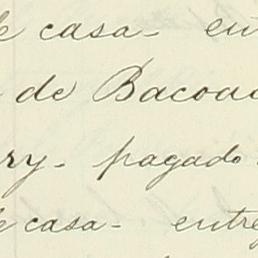 de casa- en
de Bacoac
ry- pagado
de casa- entre